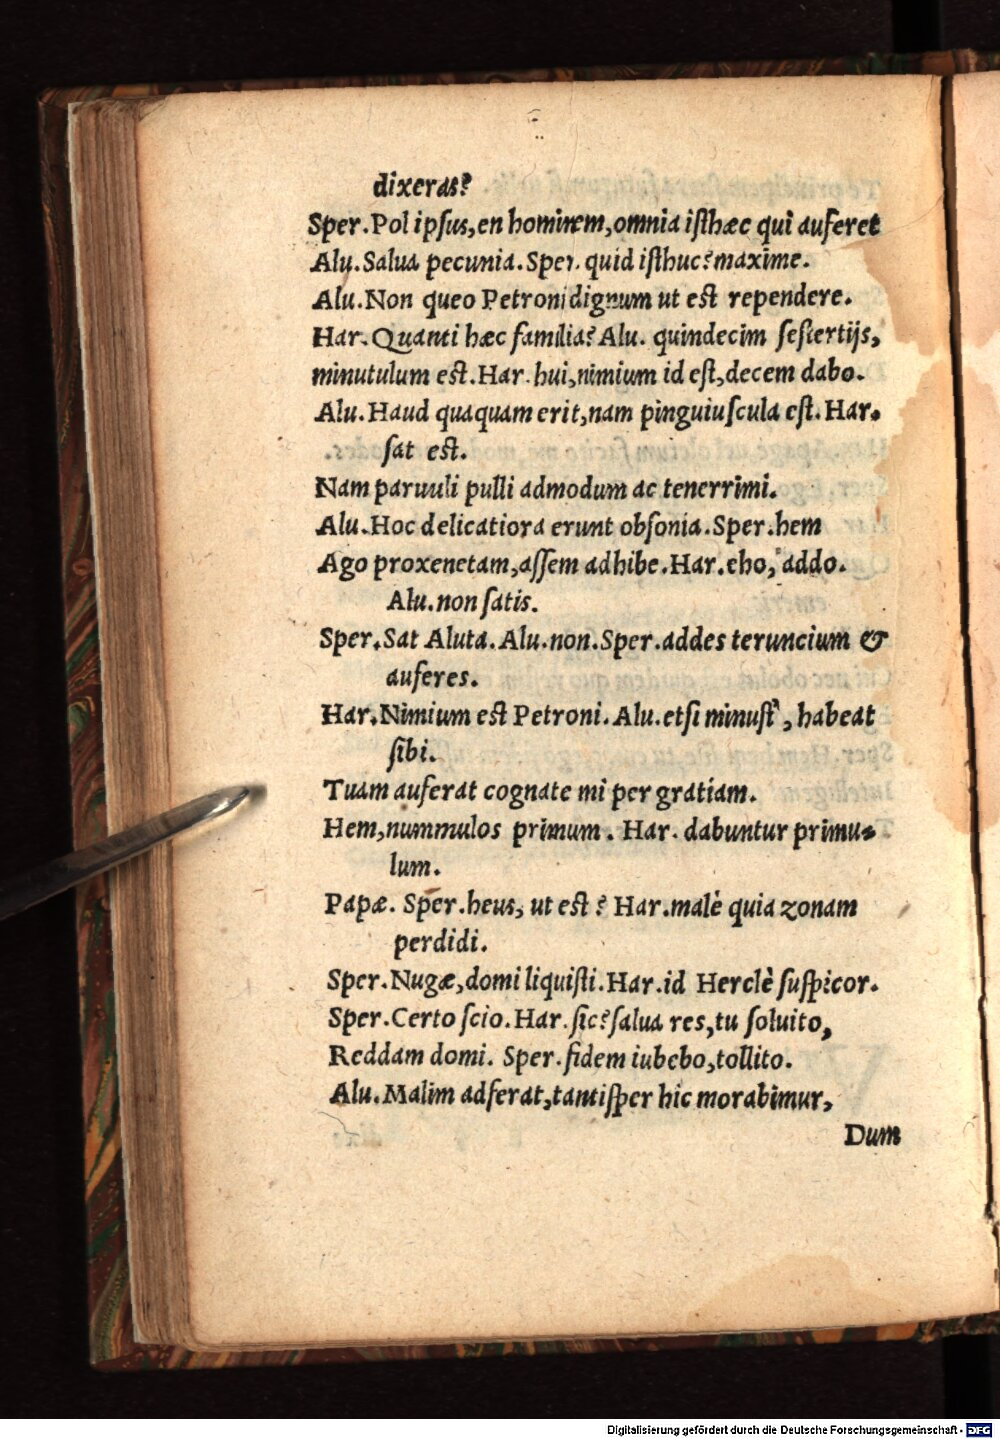 dixeras?
Sper.Pol ipsus,en hominem,omnia isthæc qui auferet
Alu.Salua pecunia.Sper.quid isthuc?maxime.
Alu.Non queo Petroni dignum ut est rependere.
Har.Quanti hæc familia?Alu. quindecim sestertijs,
minutulum est.Har.hui,nimium id est,decem dabo.
Alu.Haud quaquam erit,nam pinguiuscula est.Har.
sat est.
Nam paruuli pulli admodum ac tenerrimi.
Alu.Hoc delicatiora erunt obsonia.Sper.hem
Ago proxenetam,assem adhibe.Har.eho, addo.
Alu.non satis.
Sper.Sat Aluta.Alu.non.Sper.addes teruncium &
auferes.
Har.Nimium est Petroni.Alu.etsi minust', habeat
sibi.
Tuam auferat cognate mi per gratiam.
Hem,nummulos primum. Har. dabuntur primu-
lum.
Papæ. Sper.heus, ut est? Har.malè quia zonam
perdidi.
Sper.Nugæ,domi liquisti.Har.id Herclè suspicor.
Sper.Certo scio.Har.sic?salua res,tu soluito,
Reddam domi. Sper.fidem iubebo,tollito.
Alu.Malim adferat,tantisper hic morabimur,
Dum
Digitalisierung gefördert durch die Deutsche Forschungsgemeinschaft - DFG